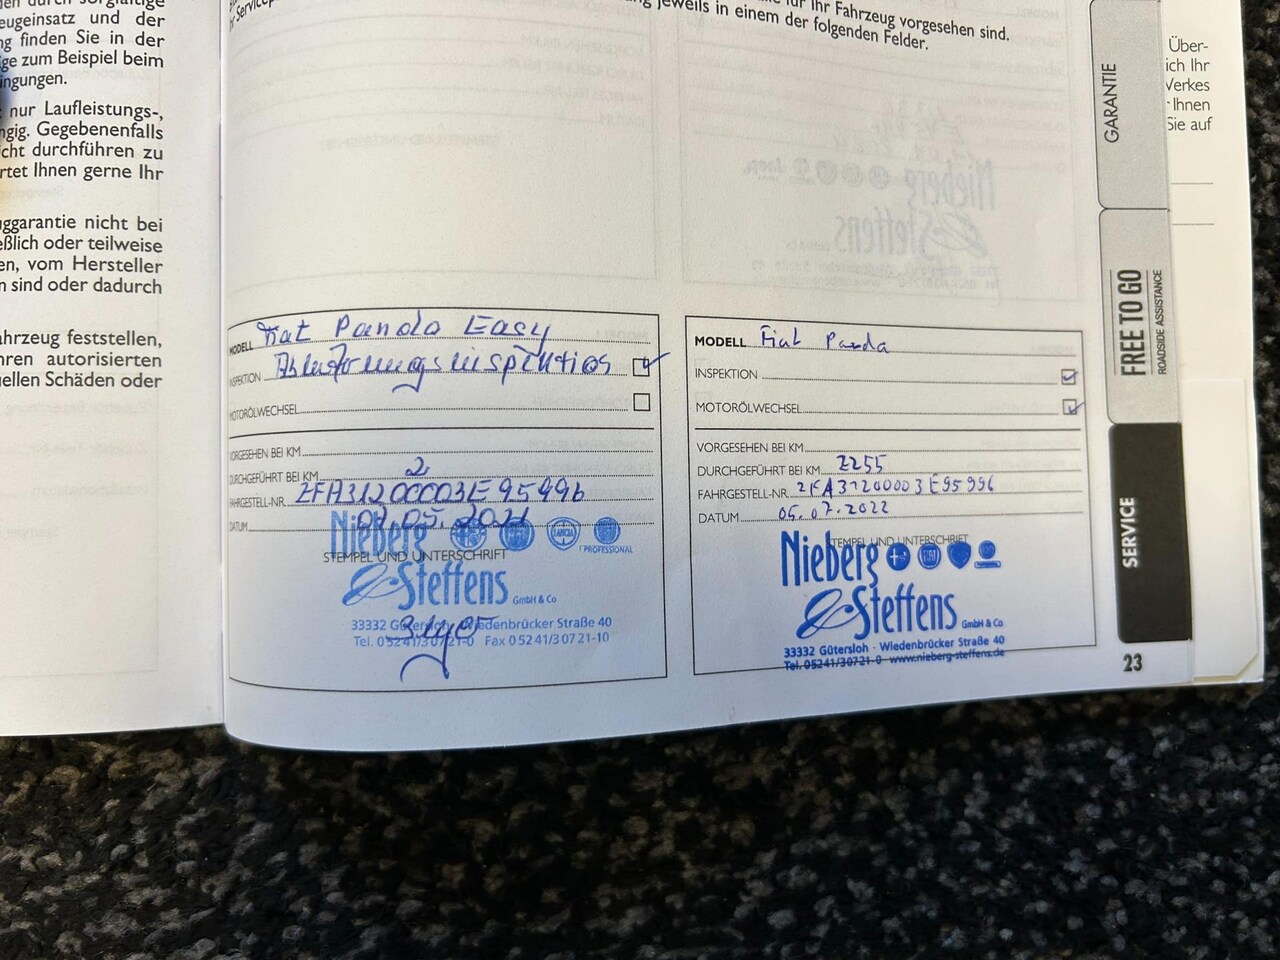 eugeinsatz und der
ng finden Sie in der
ge zum Beispiel beim
ingungen.
nur Laufleistungs-,
ngig. Gegebenenfalls
cht durchführen zu
rtet Ihnen gerne Ihr
ggarantie nicht bei
eßlich oder teilweise
en, vom Hersteller
n sind oder dadurch
ahrzeug feststellen,
hren autorisierten
uellen Schäden oder
für Ihr Fahrzeug vorgesehen sind.
jeweils in einem der folgenden Felder.
MODELL Fiat Panda Easy
INSPEKTION Ablieferungsinspektion
MOTORÖLWECHSEL
VORGESEHEN BEI KM
DURCHGEFÜHRT BEI KM 2
FAHRGESTELL-NR. ZFA31200003E95996
DATUM 07.05.2021
STEMPEL UND UNTERSCHRIFT
Nieberg
LANCIA
PROFESSIONAL
& Steffens GmbH & Co
33332 Gütersloh Wiedenbrücker Straße 40
Tel. 05241/30721-0 Fax 05241/30721-10
MODELL Fiat Panda
INSPEKTION
MOTORÖLWECHSEL
VORGESEHEN BEI KM
DURCHGEFÜHRT BEI KM 2255
FAHRGESTELL-NR. ZFA31200003E95996
DATUM 05.07.2022
STEMPEL UND UNTERSCHRIFT
Nieberg
FIAT
& Steffens GmbH & Co
33332 Gütersloh · Wiedenbrücker Straße 40
Tel. 05241/30721-0 www.nieberg-steffens.de
GARANTIE
FREE TO GO
ROADSIDE ASSISTANCE
SERVICE
23
Über-
ich Ihr
Werkes
Ihnen
Sie auf